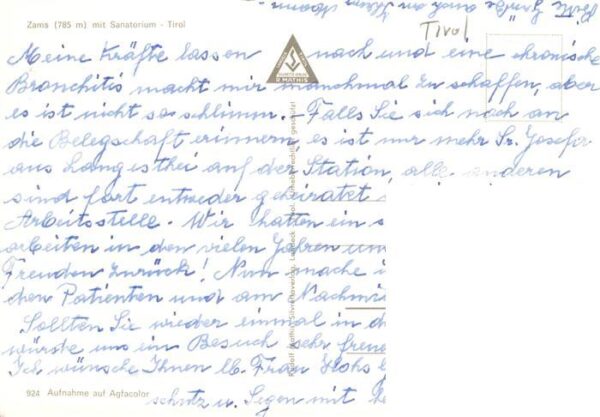 Zams (785 m) mit Sanatorium - Tirol
Tirol
R. MATHIS
Meine Kräfte lassen nach und eine chronische
Bronchitis macht mir manchmal zu schaffen, aber
es ist nicht so schlimm. - Falls Sie sich noch an
die Belegschaft erinnern, es ist nur mehr Sr. Josefa
aus Langesthei auf der Station, alle anderen
sind fort entweder geheiratet
Arbeitsstelle. Wir hatten ein s
arbeiten in den vielen Jahren und
Freuden zurück! Nun mache i
den Patienten und am Nachmi
Sollten Sie wieder einmal in d
würde uns ein Besuch sehr freue
Ich wünsche Ihnen lb. Frau
schutz u. Segen mit
924 Aufnahme auf Agfacolor